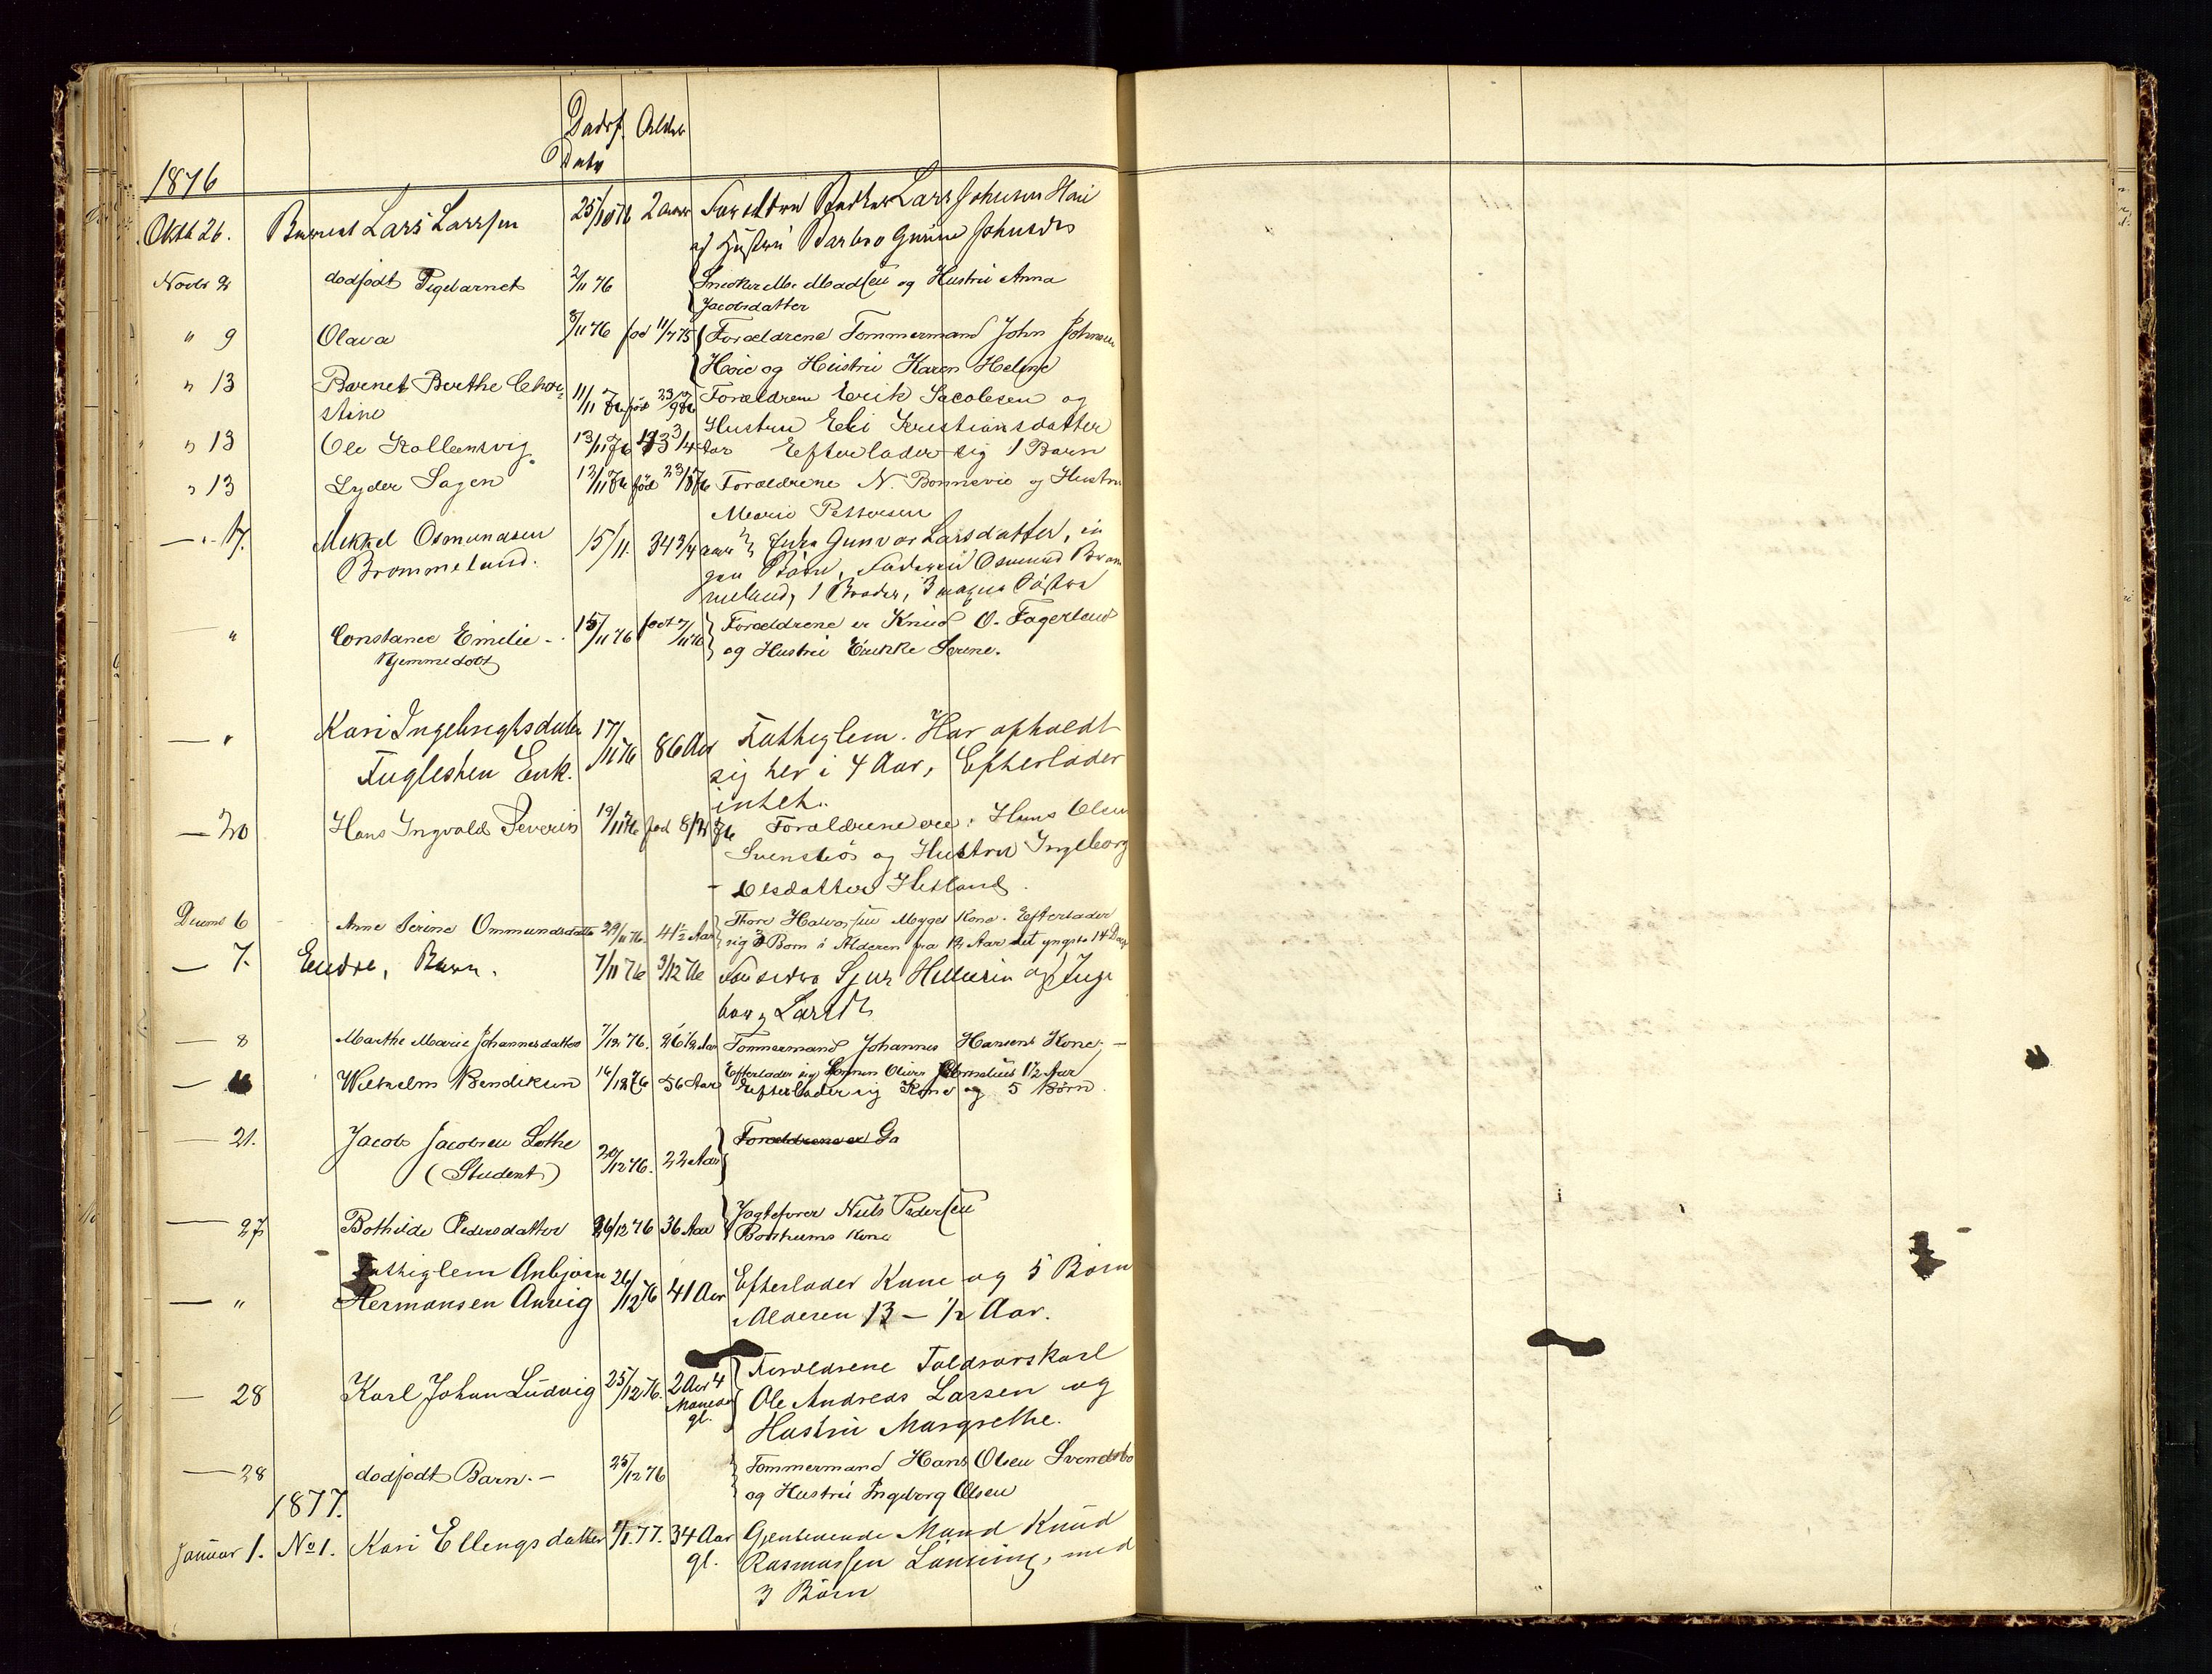 Dødsf. Alder
Dato
1876
Oktb 26. Barnet Lars Larssen 25/10 76 2 aar Forældre Lars Johnsen Høie
og Hustru Barbro Gurine Johnsdr
Novbr 2 dødfødt Pigebarnet 2/11 76 Snedker M. Madsen og Hustru Anna
Jacobsdatter
" 9 Olava 8/11 76 fød 11/7 75 Forældrene Tømmermand John Johnsen
Høie og Hustru Karen Heline
" 13 Barnet Berthe Chri=
stine 11/11 76 fød 23/9 76 Forældrene Erik Jacobsen og
Hustru Eli Kristiansdatter
" 13 Ole Kolbensvig 13/11 76 3/4 Aar Efterlader sig 1 Barn
" 13 Lyder Sagen 12/11 76 fød 23/8 76 Forældrene N. Bonnevie og Hustru
Marie Pettersen
— " 17. Mikkel Osmundsen
Brommeland. 15/11. 34 3/4 aar Enke Gunvor Larsdatter, in
gen Børn, Faderen Osmund Brom
meland, 1 Broder, 3 Søstre
— " Constance Emilie -.
Hjemmedøbt 15/11 76 født 7/11 76 Forældrene er Knud O. Fagerland
og Hustru Serine.
— " Kari Ingebrigtsdatter
Fuglesten Enk. 17/11 76 86 Aar Fattiglem. Har opholdt
sig her i 4 Aar, Efterlader
intet.
— 20 Hans Ingvald Severin 19/11 76 fød 8/2 76 Forældrene ere: Hans Olsen
Svensbø og Hustru Ingeborg
- Olsdatter Hetland.
Decemb 6 Anne Serine Ommundsdatter 29/11 76. 41 1/2 Aar Thore Halvorsen Mygges Kone. Efterlader
sig 3 Børn i Alderen fra 12 Aar det yngste 14 Dage
— 7. Endre, Barn. 7/11 76 3/12 76 Forældre Sjur og Inge
borg Larsdtr
— 8 Marthe Marie Johannesdatter 7/12 76. 26 1/2 Aar Tømmermand Johannes Hansens Kone. —
Efterlader sig Sønnen Oliver Cornelius 1 1/2 Aar
— Wilhelm Bendiksen 16/12 76 56 Aar Efterlader sig Kone og 5 Børn.
— 21. Jacob Jacobsen Lothe
(Student) 20/12 76. 22 Aar Forældrene er Ga
— 27 Bothilde Pedersdatter 26/12 76 36 Aar Jagtefører Niels Pedersen
Borhums Kone
— " Fattiglem Anbjørn
Hermansen Anvig 26/12 76 41 Aar Efterlader Kone og 5 Børn
i Alderen 13 — 1/2 Aar.
— 28 Karl Johan Ludvig 25/12 76. 2 Aar 4
Maaneder
gl. Forældrene Toldrorskarl
Ole Andreas Larsen og
Hustru Margrethe.
— 28 dødfødt Barn. — 25/12 76 Tømmermand Hans Olsen Svendsbø
og Hustru Ingeborg Olsen
1877.
Januar 1. No 1. Kari Ellingsdatter 1/1. 77. 34 Aar
gl. Gjenlevende Mand Knud
Rasmussen Lønning, med
3 Børn